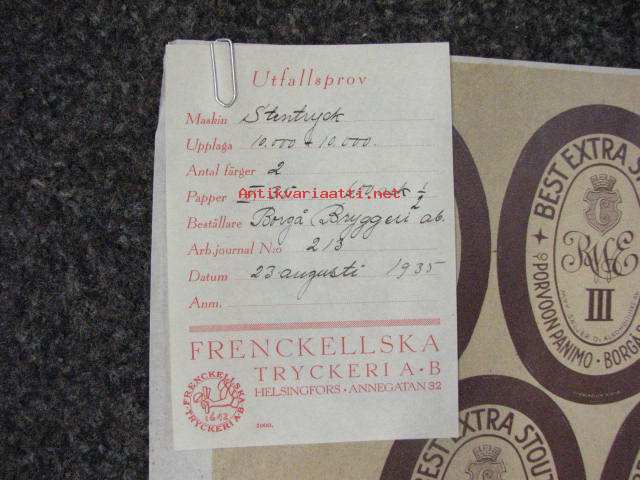 Utfallsprov
Maskin Stentryck
Upplaga 10.000 + 10.000
Antal färger 2
Papper
Antikvariaatti.net
Beställare Borgå Bryggeri ab.
Arb.journal N:o 213
Datum 23 augusti 1935
Anm.
FRENCKELLSKA
TRYCKERI A·B
HELSINGFORS · ANNEGATAN 32
FRENCKELLSKA
TRYCKERI A·B
1642
BEST EXTRA S
III
PORVOON PANIMO · BORGÅ
BEST EXTRA STOUT